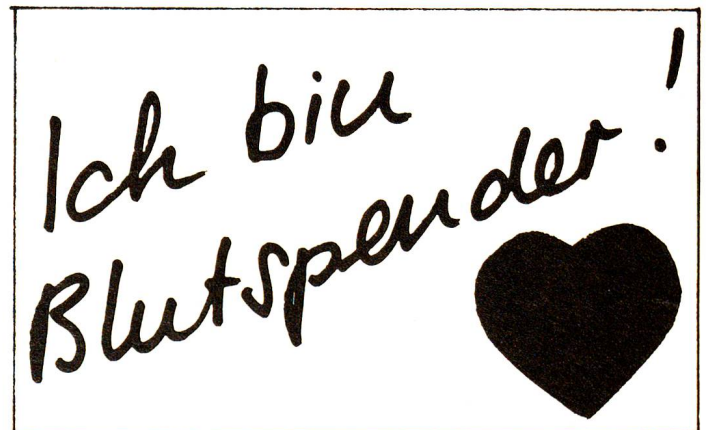 Ich bin
Blutspender!